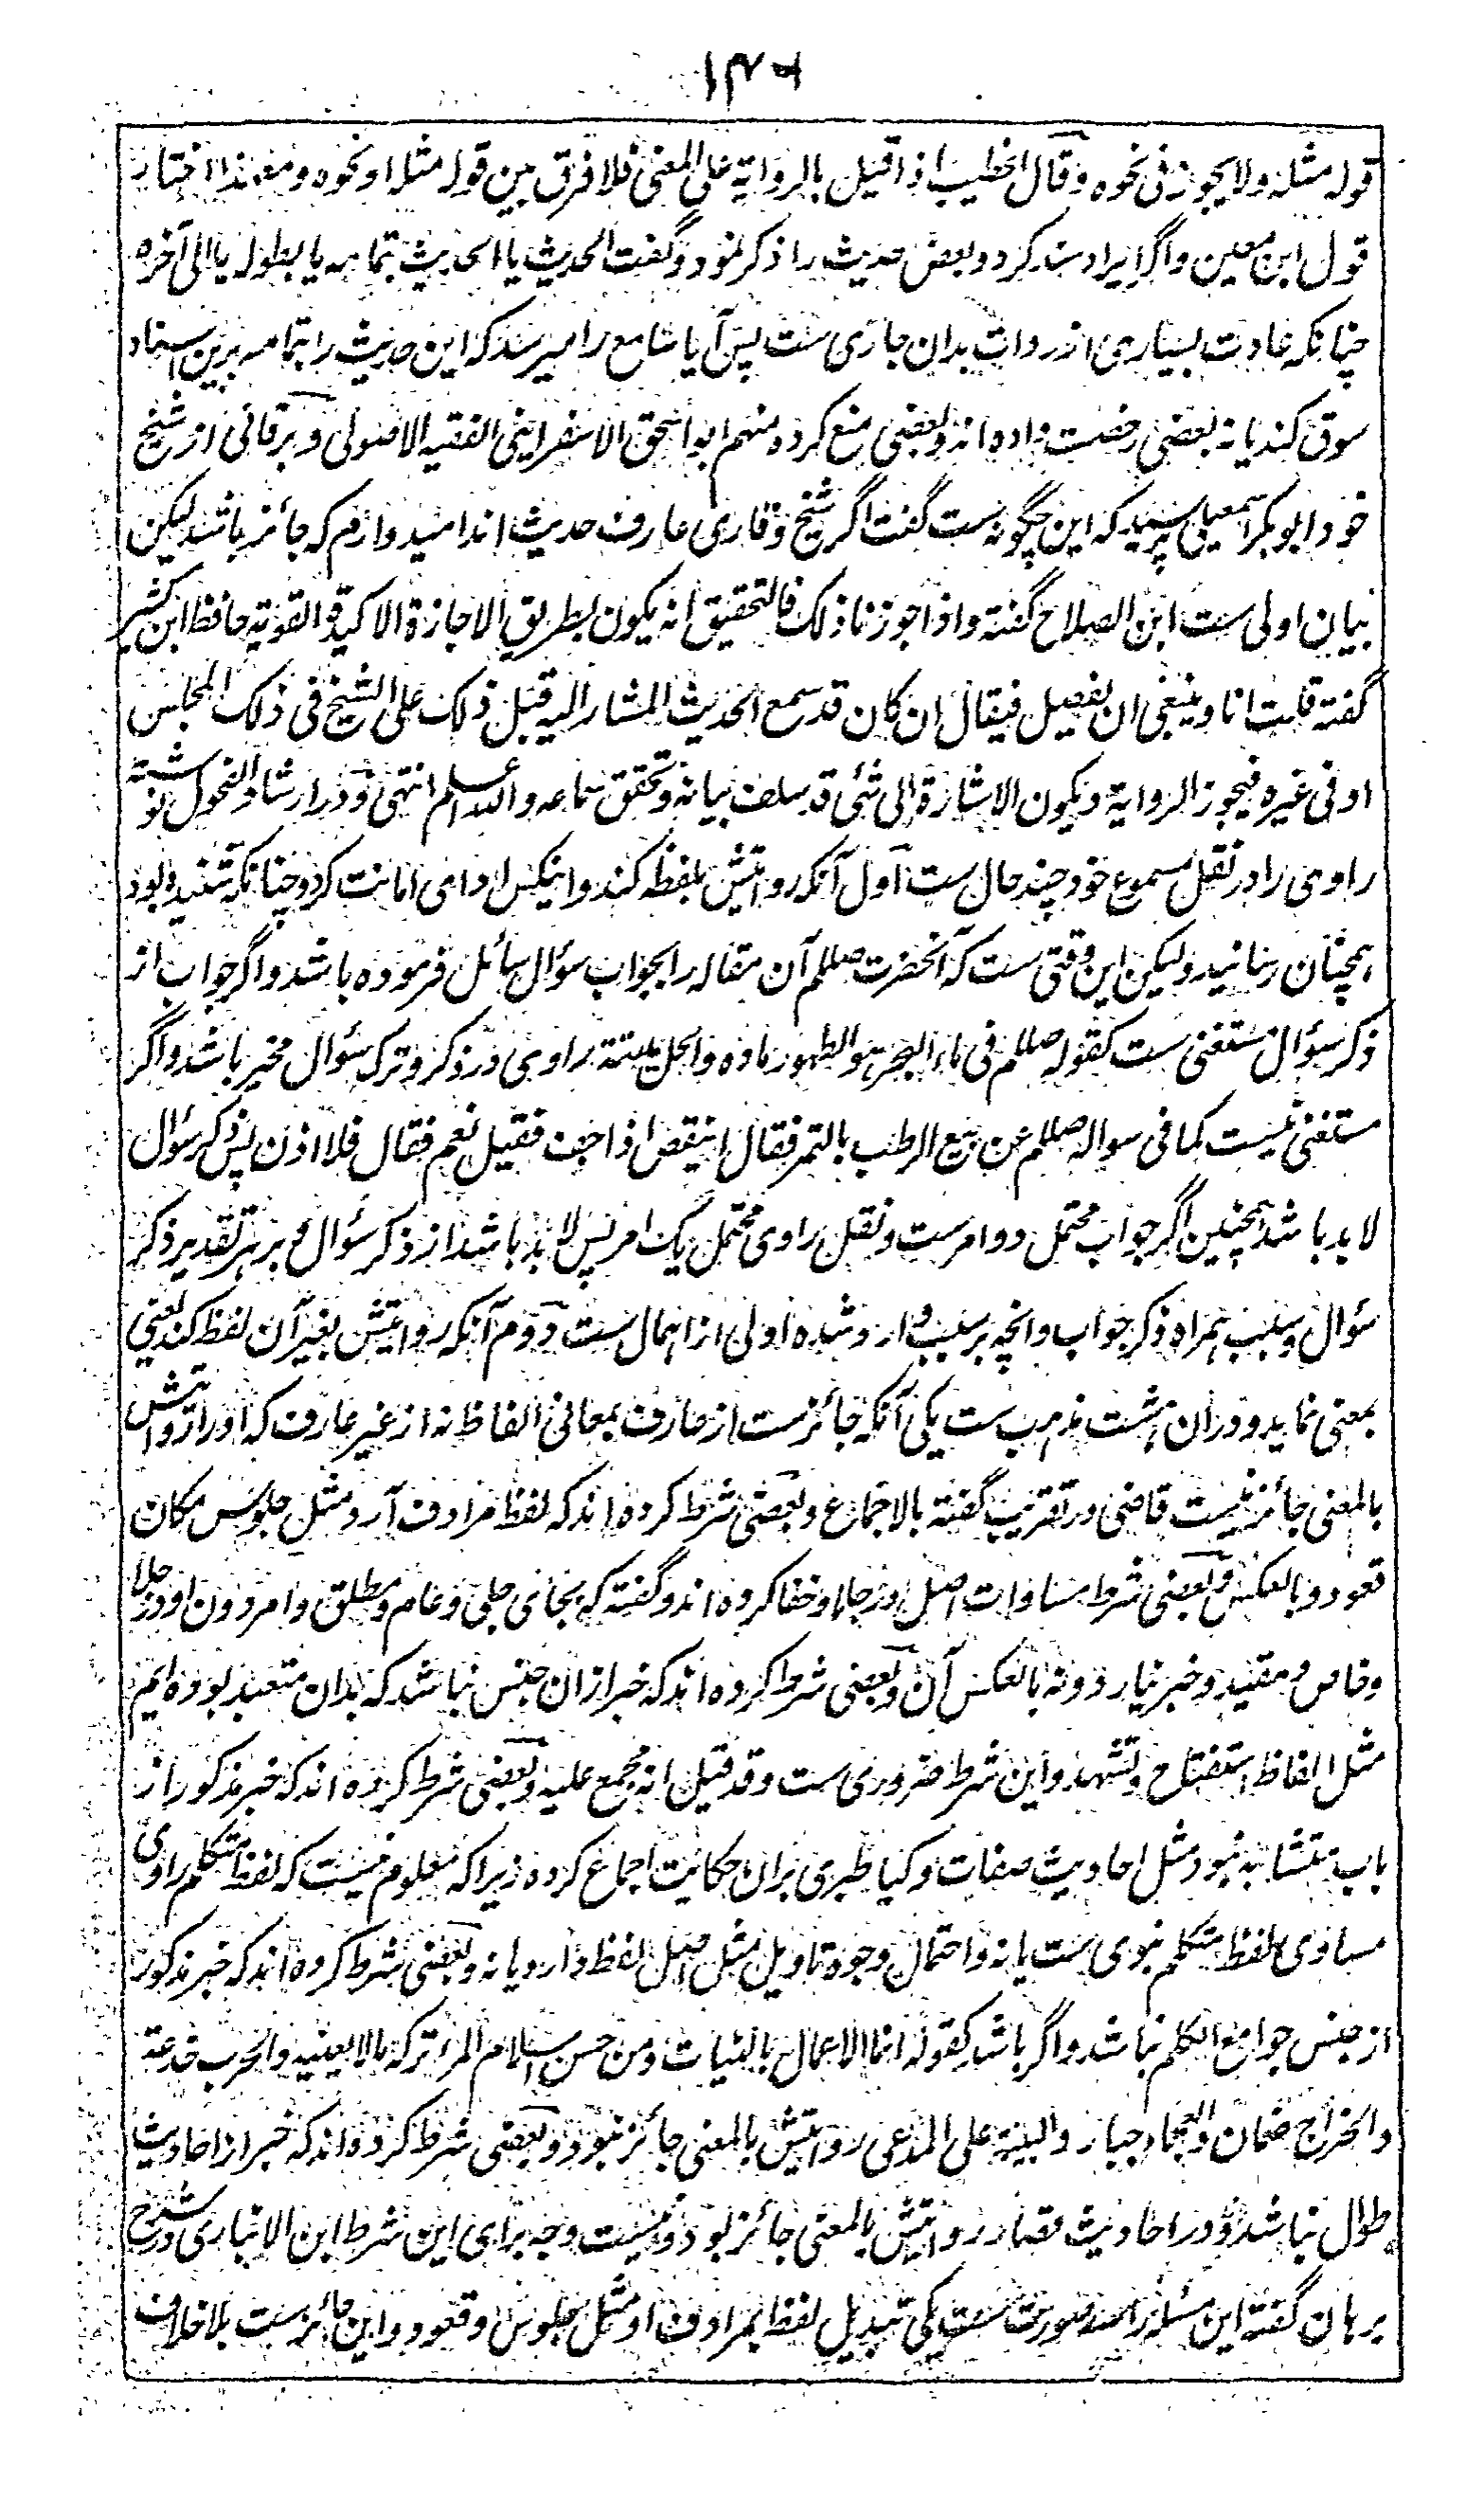 ۱۳۶
قوله مثله ولا يجوز فی نحوه وقال الخطيب اذا قيل بالرواية علی المعنی فلا فرق بين قوله مثله او نحوه ومعهذا اختار
قول ابن معين واگر ايراد سند کرد وبعض حديث را ذکر نمود وگفت الحديث يا الحديث بتمامه يا بطوله يا الی آخره
چنانکه عادت بسياری از روات بدان جاری ست پس آيا سامع را ميرسد که اين حديث را بتمامه برين اسناد
سوق کند يا نه بعضی رخصت داده اند وبعضی منع کرده منهم ابو اسحق الاسفراينی الفقيه الاصولی وبرقانی از شيخ
خود ابو بکر اسمعيلی پرسيد که اين چگونه ست گفت اگر شيخ وقاری عارف حديث اند اميدوارم که جائز باشد ليکن
بيان اولی ست ابن الصلاح گفته واذا جوزنا ذلک فالتحقيق انه يکون بطريق الاجازة الاکيدة القوية حافظ ابن کثير
گفته قلت انا وينبغی ان يفصل فيقال ان کان قد سمع الحديث المشار اليه قبل ذلک علی الشيخ فی ذلک المجلس
او فی غيره فيجوز الرواية ويکون الاشارة الی شئی قد سلف بيانه وتحقق سماعه والله اعلم انتهی ودر ارشاد الفحول نوشته
راوی را در نقل مسموع خود چند حال ست اول آنکه روايتش بلفظه کند واينکس ادای امانت کرد وچنانکه شنيده بود
همچنان رسانيد وليکن اين وقتی ست که آنحضرت صللم آن مقاله را بجواب سؤال سائل فرموده باشد واگر جواب از
ذکر سؤال مستغنی ست کقوله صللم فی ماء البحر هو الطهور ماؤه والحل ميتته راوی در ذکر وترک سؤال مخير باشد واگر
مستغنی نيست کما فی سواله صللم عن بيع الرطب بالتمر فقال اينقص اذا جف فقيل نعم فقال فلا اذن پس ذکر سؤال
لابد باشد همچنين اگر جواب محتمل دو امرست ونقل راوی محتمل يک امر پس لابد باشد از ذکر سؤال و بر هر تقدير ذکر
سؤال وسبب همراه ذکر جواب وانچه بر سبب وارد شده اولی از اهمال ست دوم آنکه روايتش بغير آن لفظ کند يعنی
بمعنی نمايد ودران هشت مذهب ست يکی آنکه جائزست از عارف بمعانی الفاظ نه از غير عارف که او را روايتش
بالمعنی جائز نيست قاضی در تقريب گفته بالاجماع وبعضی شرط کرده اند که لفظ مرادف آرد مثل جلوس مکان
قعود وبالعکس وبعضی شرط مساوات اصل در جلا وخفا کرده اند وگفته که بجای جلی وعام ومطلق وامر دون او در جلا
وخاص ومقيد وخبر نيارد ونه بالعکس آن وبعضی شرط کرده اند که خبر ازان جنس نباشد که بدان متعبد بوده ايم
مثل الفاظ استفتاح وتشهد واين شرط ضروری ست وقد قيل انه مجمع عليه وبعضی شرط کرده اند که خبر مذکور از
باب متشابه نبود مثل احاديث صفات وکيا طبری بران حکايت اجماع کرده زيرا که معلوم نيست که لفظ متکلم راوی
مساوی لفظ متکلم نبوی ست يا نه واحتمال وجوه تاويل مثل اصل لفظ دارد يا نه وبعضی شرط کرده اند که خبر مذکور
از جنس جوامع الکلم نباشد واگر باشد کقوله انما الاعمال بالنيات ومن حسن اسلام المرء ترکه ما لا يعنيه والحرب خدعة
والخراج ضمان والعجماء جبار والبينة علی المدعی روايتش بالمعنی جائز نبود وبعضی شرط کرده اند که خبر از احاديث
طوال نباشد ودر احاديث قصار روايتش بالمعنی جائز بود ونيست وجه برای اين شرط ابن الانباری در شرح
برهان گفته اين مسئله را سه صورت ست يکی تبديل لفظ بمرادف او مثل جلوس وقعود واين جائزست بلا خلاف